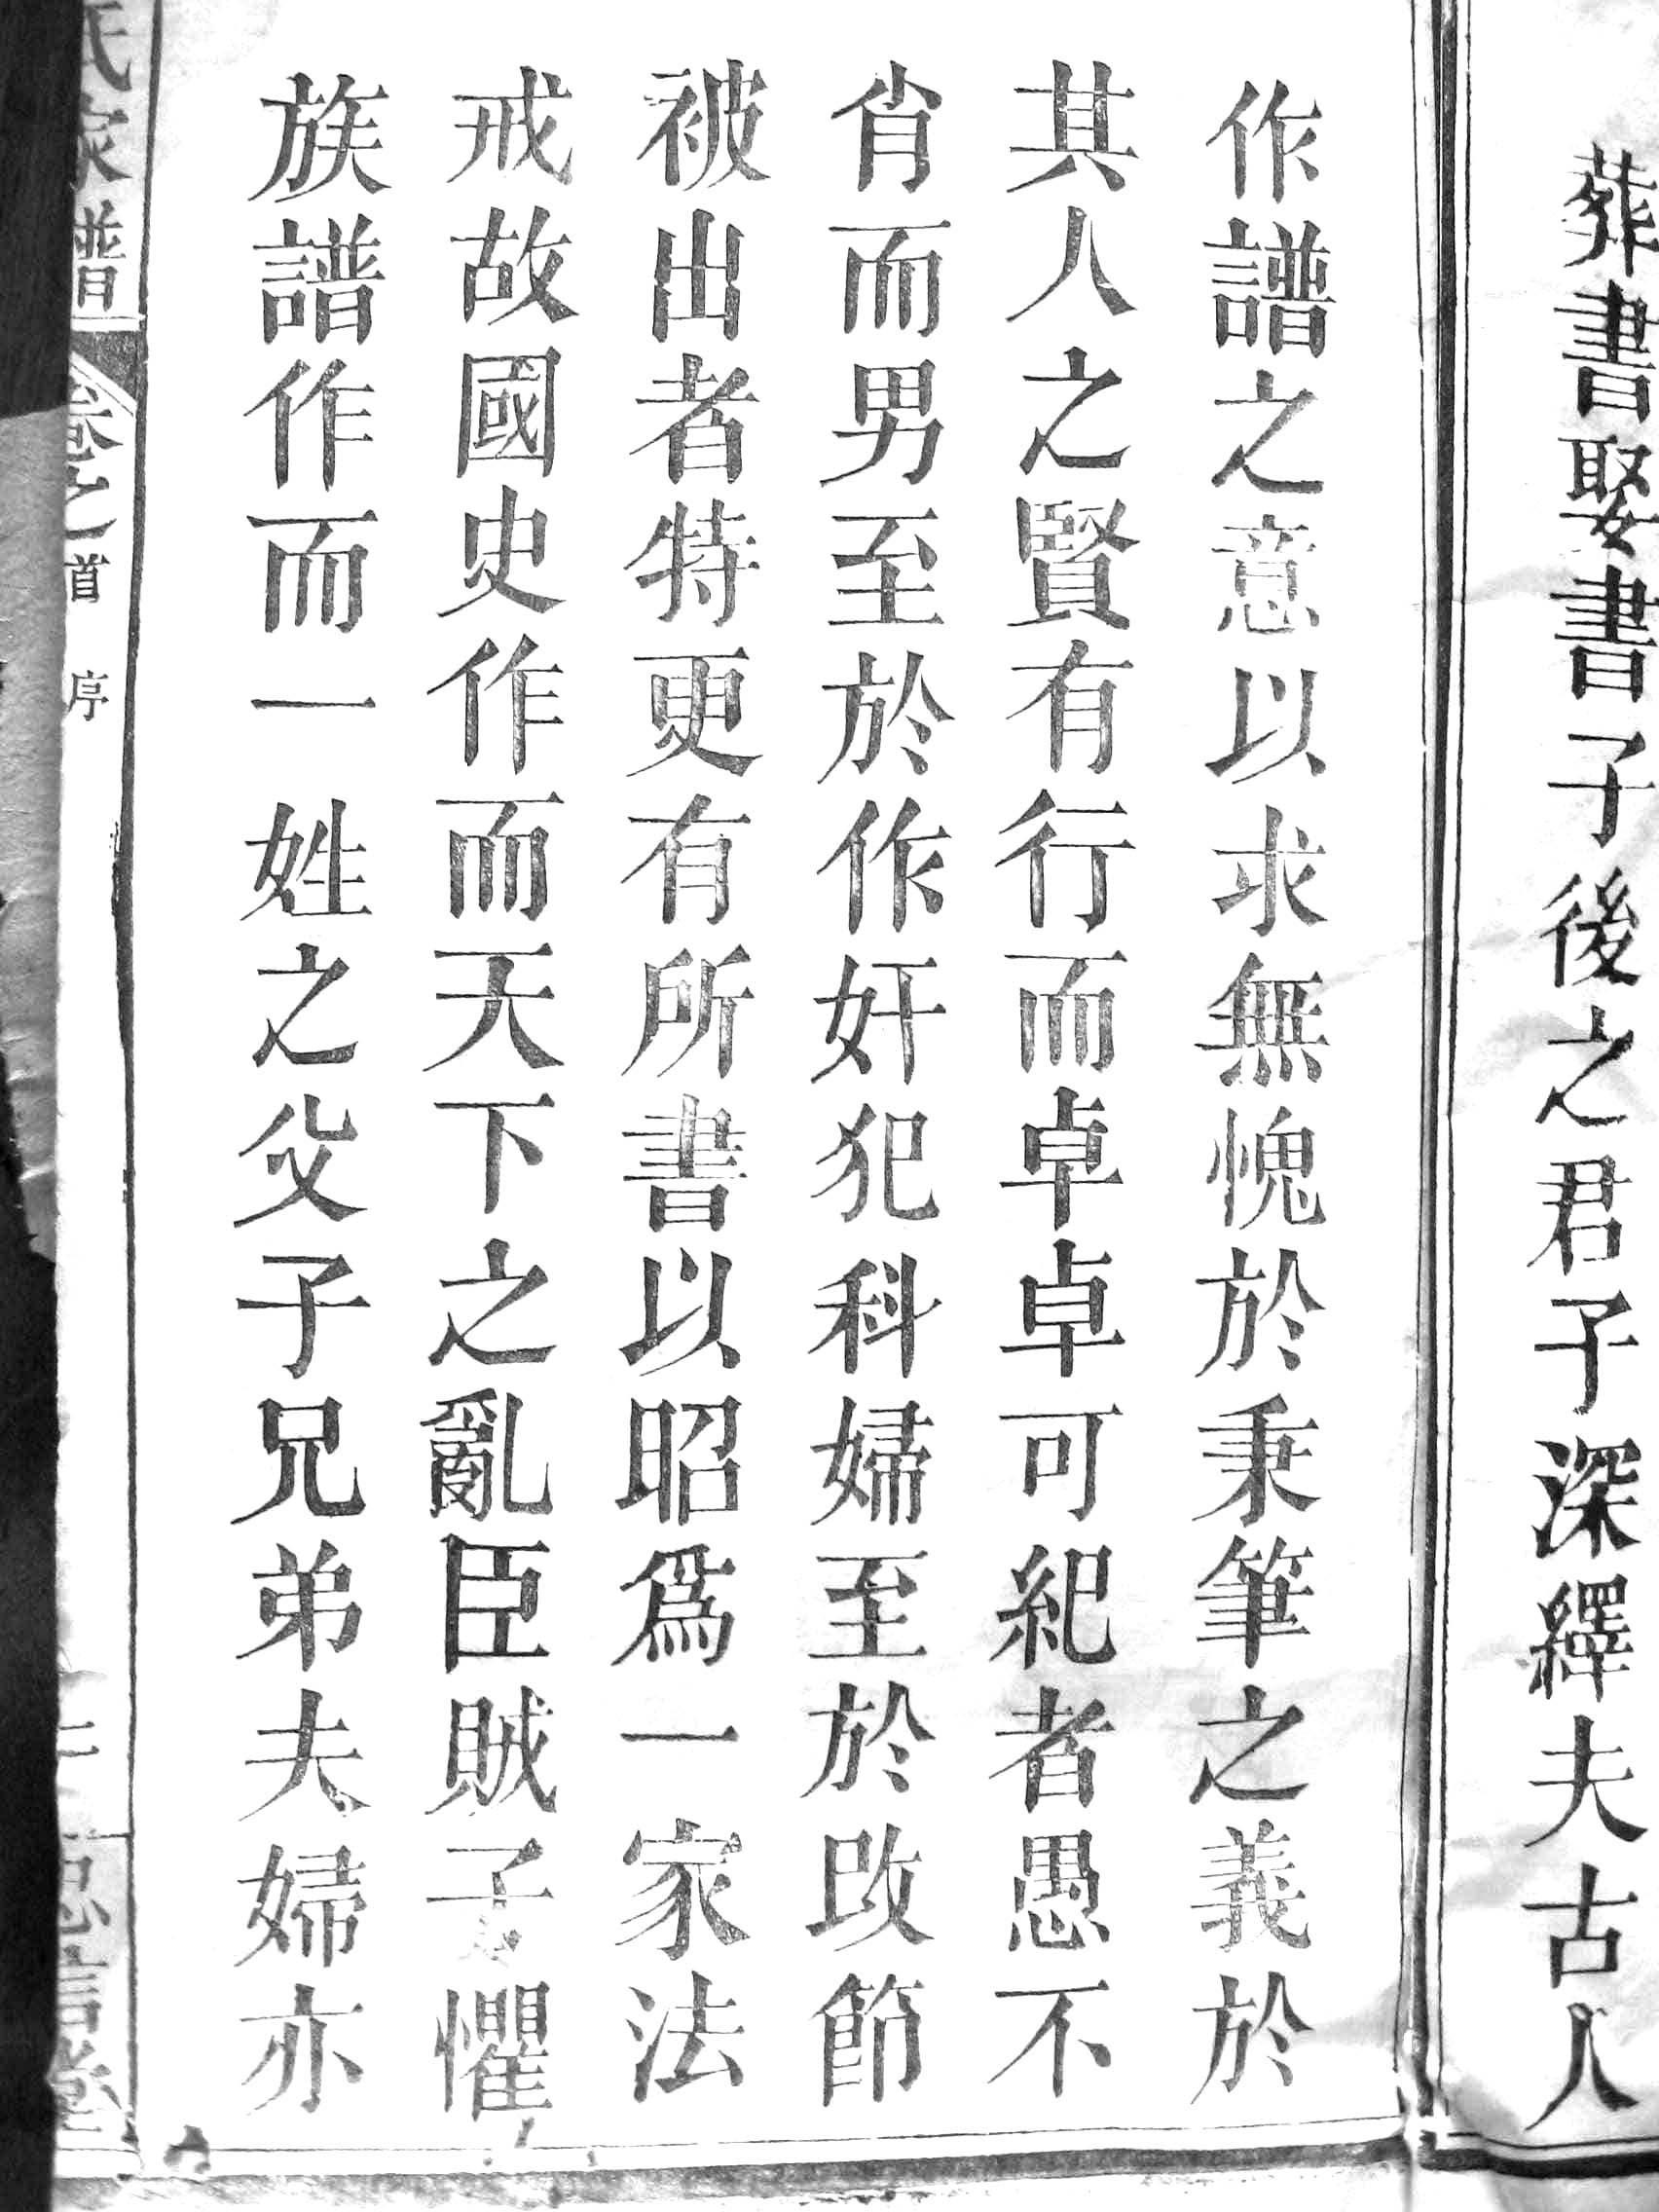 葬書娶書子後之君子深繹夫古人
作譜之意以求無愧於秉筆之義於
其人之賢有行而卓卓可紀者愚不
肖而男至於作奸犯科婦至於改節
被出者特更有所書以昭為一家法
戒故國史作而天下之亂臣賊子懼
族譜作而一姓之父子兄弟夫婦亦
氏家譜 卷之首 序 忠信堂